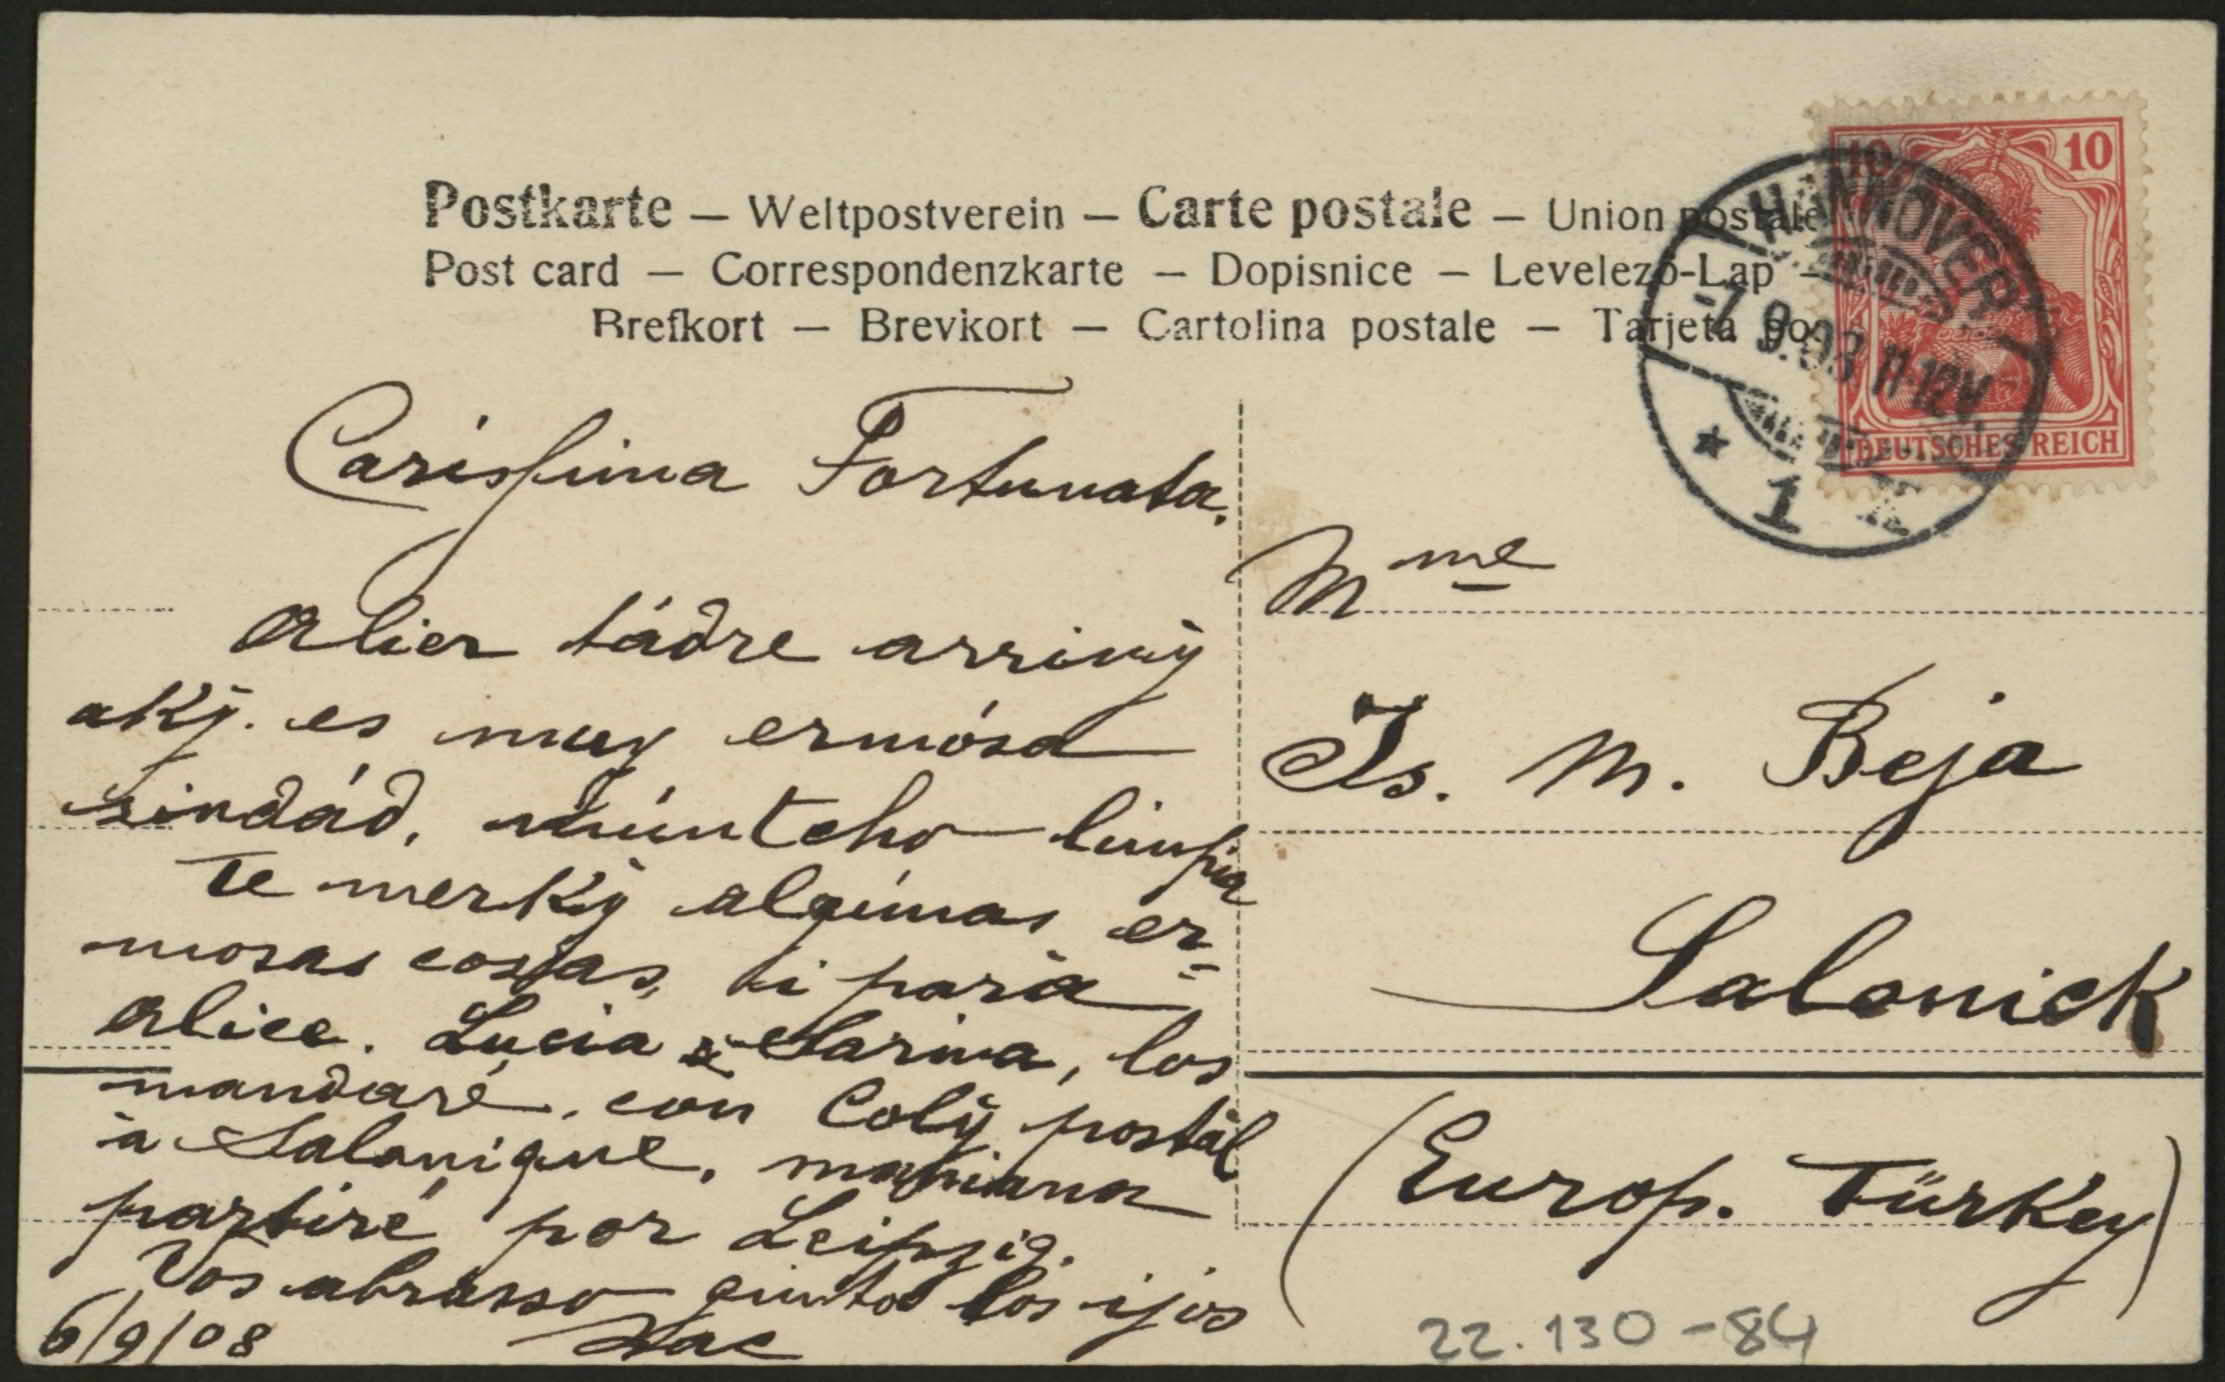 Postkarte — Weltpostverein — Carte postale — Union postale
Post card — Correspondenzkarte — Dopisnice — Levelező-Lap —
Brefkort — Brevkort — Cartolina postale — Tarjeta po
10 10
DEUTSCHES REICH
HANNOVER
-7.9.08 11-12V.
* 1
Carissima Fortunata.
Alier tádre arrivÿ
akÿ. es muy ermósa
sivdád, múntcho limpia
Te merkÿ algúnas er=
mosas cosas, ti para
Alice. Lucia & Sarina, los
mandaré, con Colÿ postàl
à Salonique, maniana
partiré por Leipzig.
Vos abrasso giuntos los ijos
6/9/08 Isac
Mme
Is. M. Beja
Salonick
(Europ. Türkey)
22.130-84